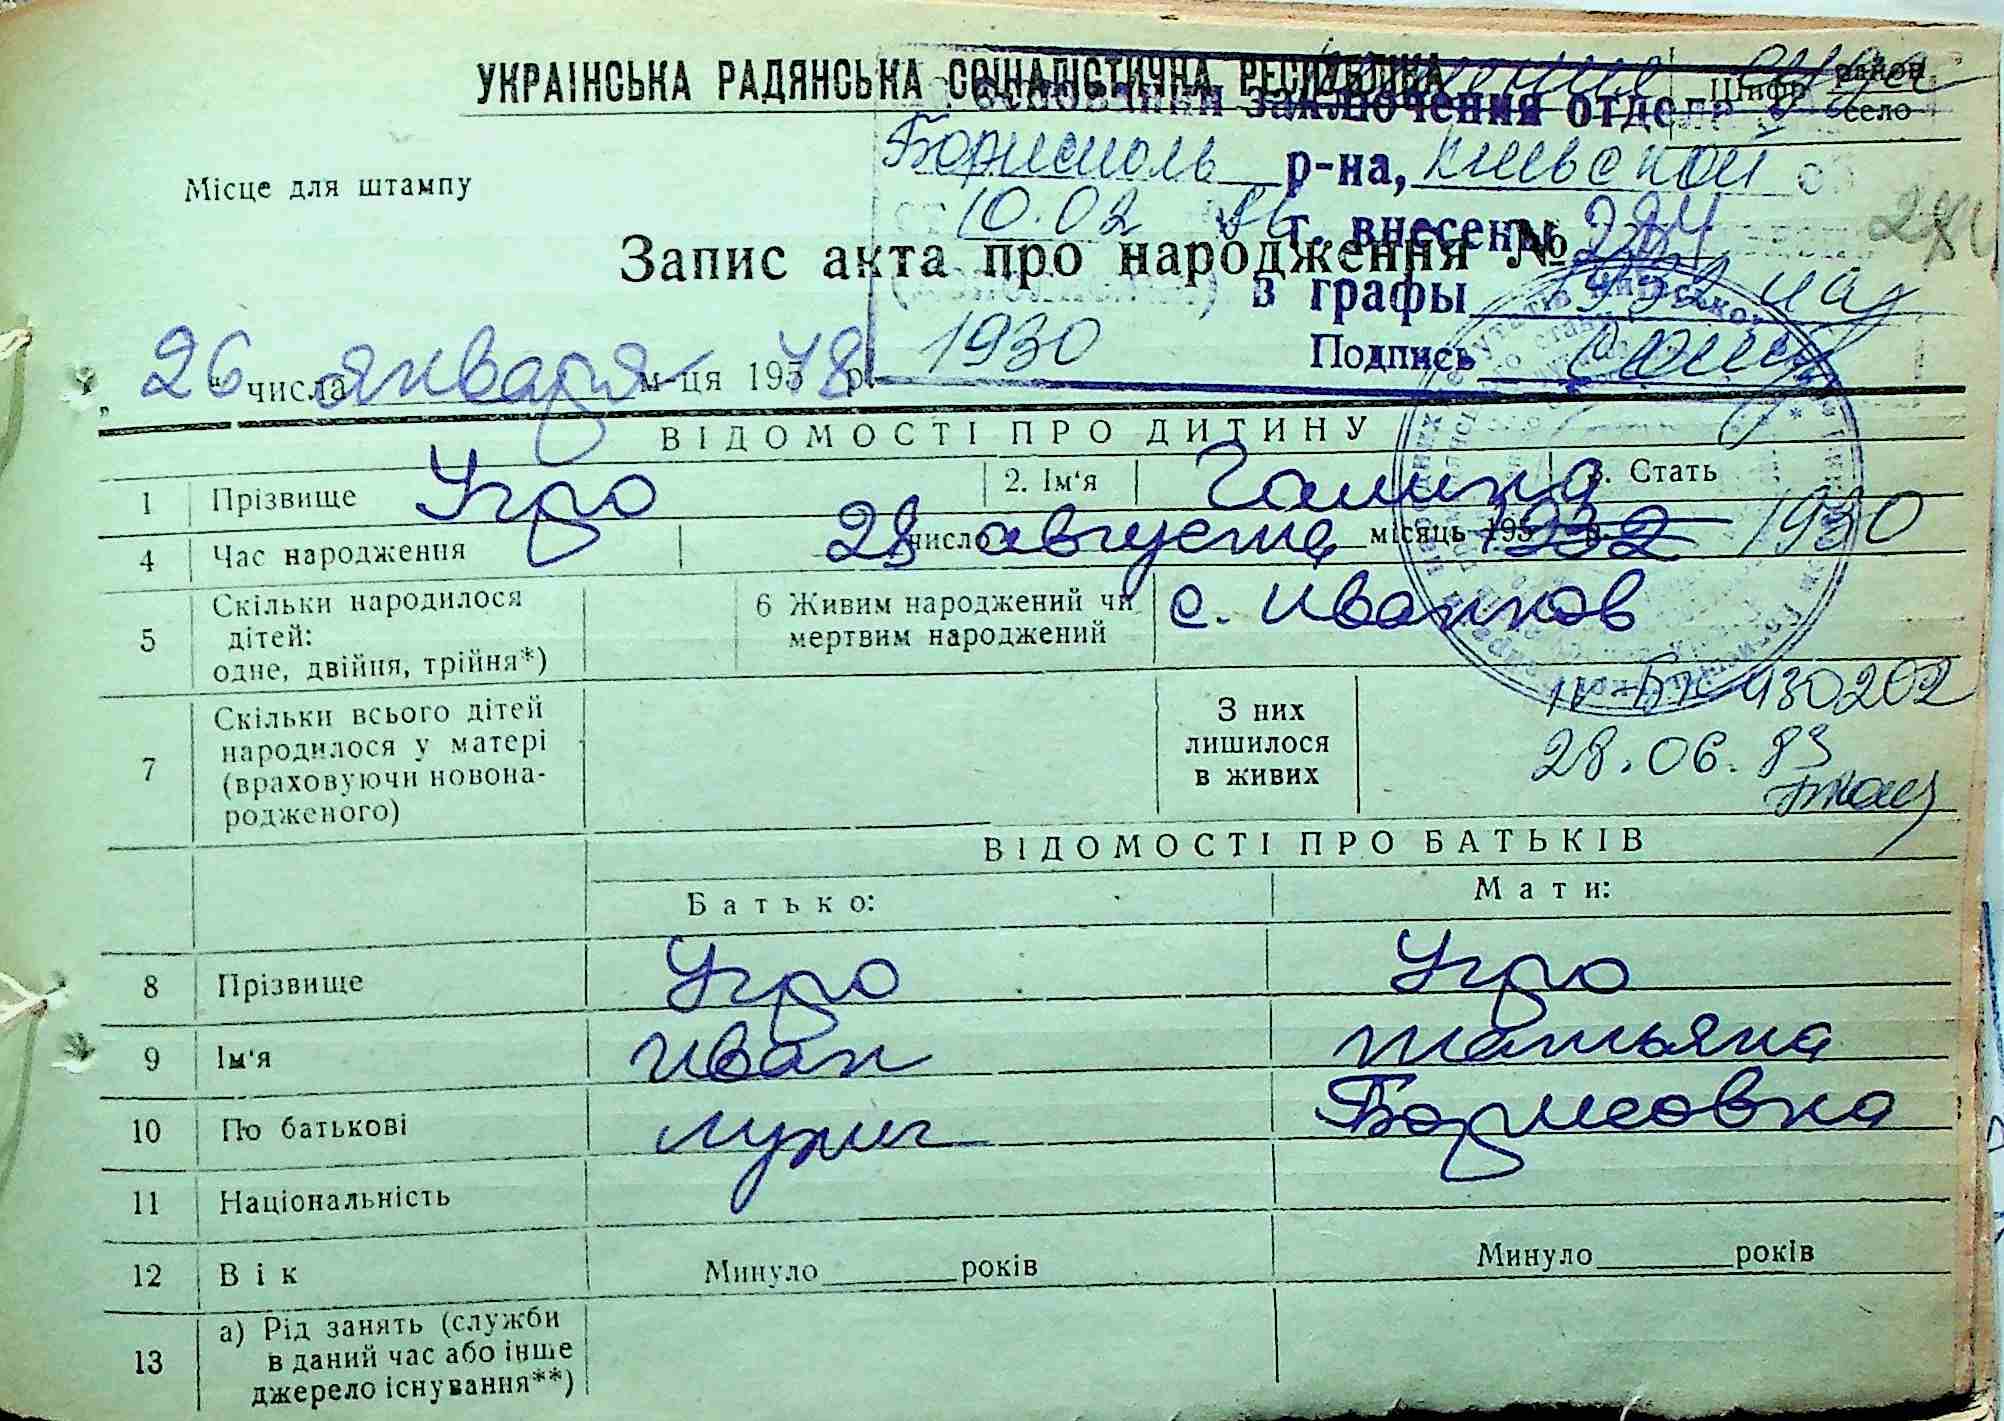 УКРАЇНСЬКА РАДЯНСЬКА СОЦІАЛІСТИЧНА РЕСПУБЛІКА
Шифр район
село
заключения отдела
Бориспиль р-на, Киевской об
Місце для штампу
10.02 86 г. внесены
284
Запис акта про народження № 284
в графы
1930
Подпись
„26“ числа января м-ця 195 48 р.
ВІДОМОСТІ ПРО ДИТИНУ
1 Прізвище Угро 2. Ім'я Галина 3. Стать
4 Час народження 28 число августа місяць 195 1932 р. 1930
5 Скільки народилося
дітей:
одне, двійня, трійня*)
6 Живим народжений чи
мертвим народжений
с. Иванков
7 Скільки всього дітей
народилося у матері
(враховуючи новона-
родженого)
З них
лишилося
в живих
IV-БК 430202
28.06.83
ВІДОМОСТІ ПРО БАТЬКІВ
Батько: Мати:
8 Прізвище Угро Угро
9 Ім'я Иван Татьяна
10 По батькові Борисовна
11 Національність
12 Вік Минуло років Минуло років
13 а) Рід занять (служби
в даний час або інше
джерело існування**)